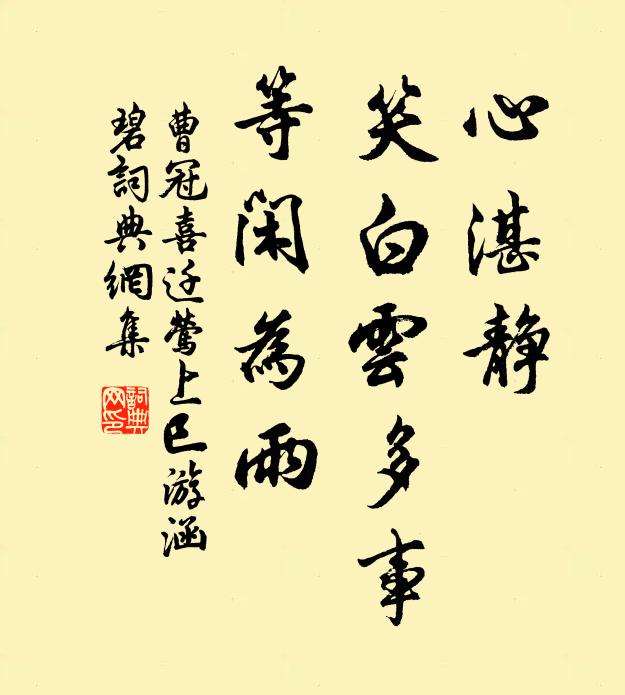 心湛靜
笑白雲多事
等閑為雨
曹冠喜迁鶯上巳游涵
碧詞典網集
詞典網印